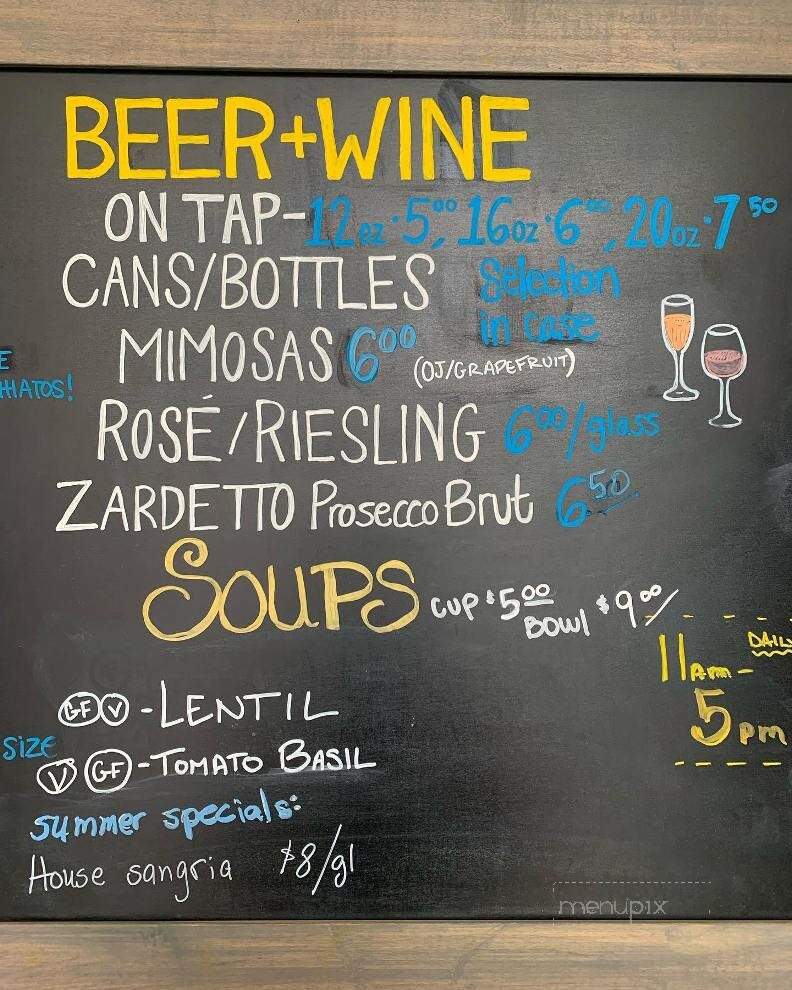 BEER+WINE
ON TAP-12oz·5.00, 16oz·6.00, 20oz·7 50
CANS/BOTTLES Selection
in case
MIMOSAS 6 00 (OJ/GRAPEFRUIT)
E
HIATOS!
ROSÉ/RIESLING 6 00/glass
ZARDETTO Prosecco Brut 6 50
SOUPS CUP $5 00
BOWl $9 00/
DAILY
11am-
5pm
GF V -LENTIL
SIZE
V GF -TOMATO BASIL
summer specials:
House sangria $8/gl
menupix